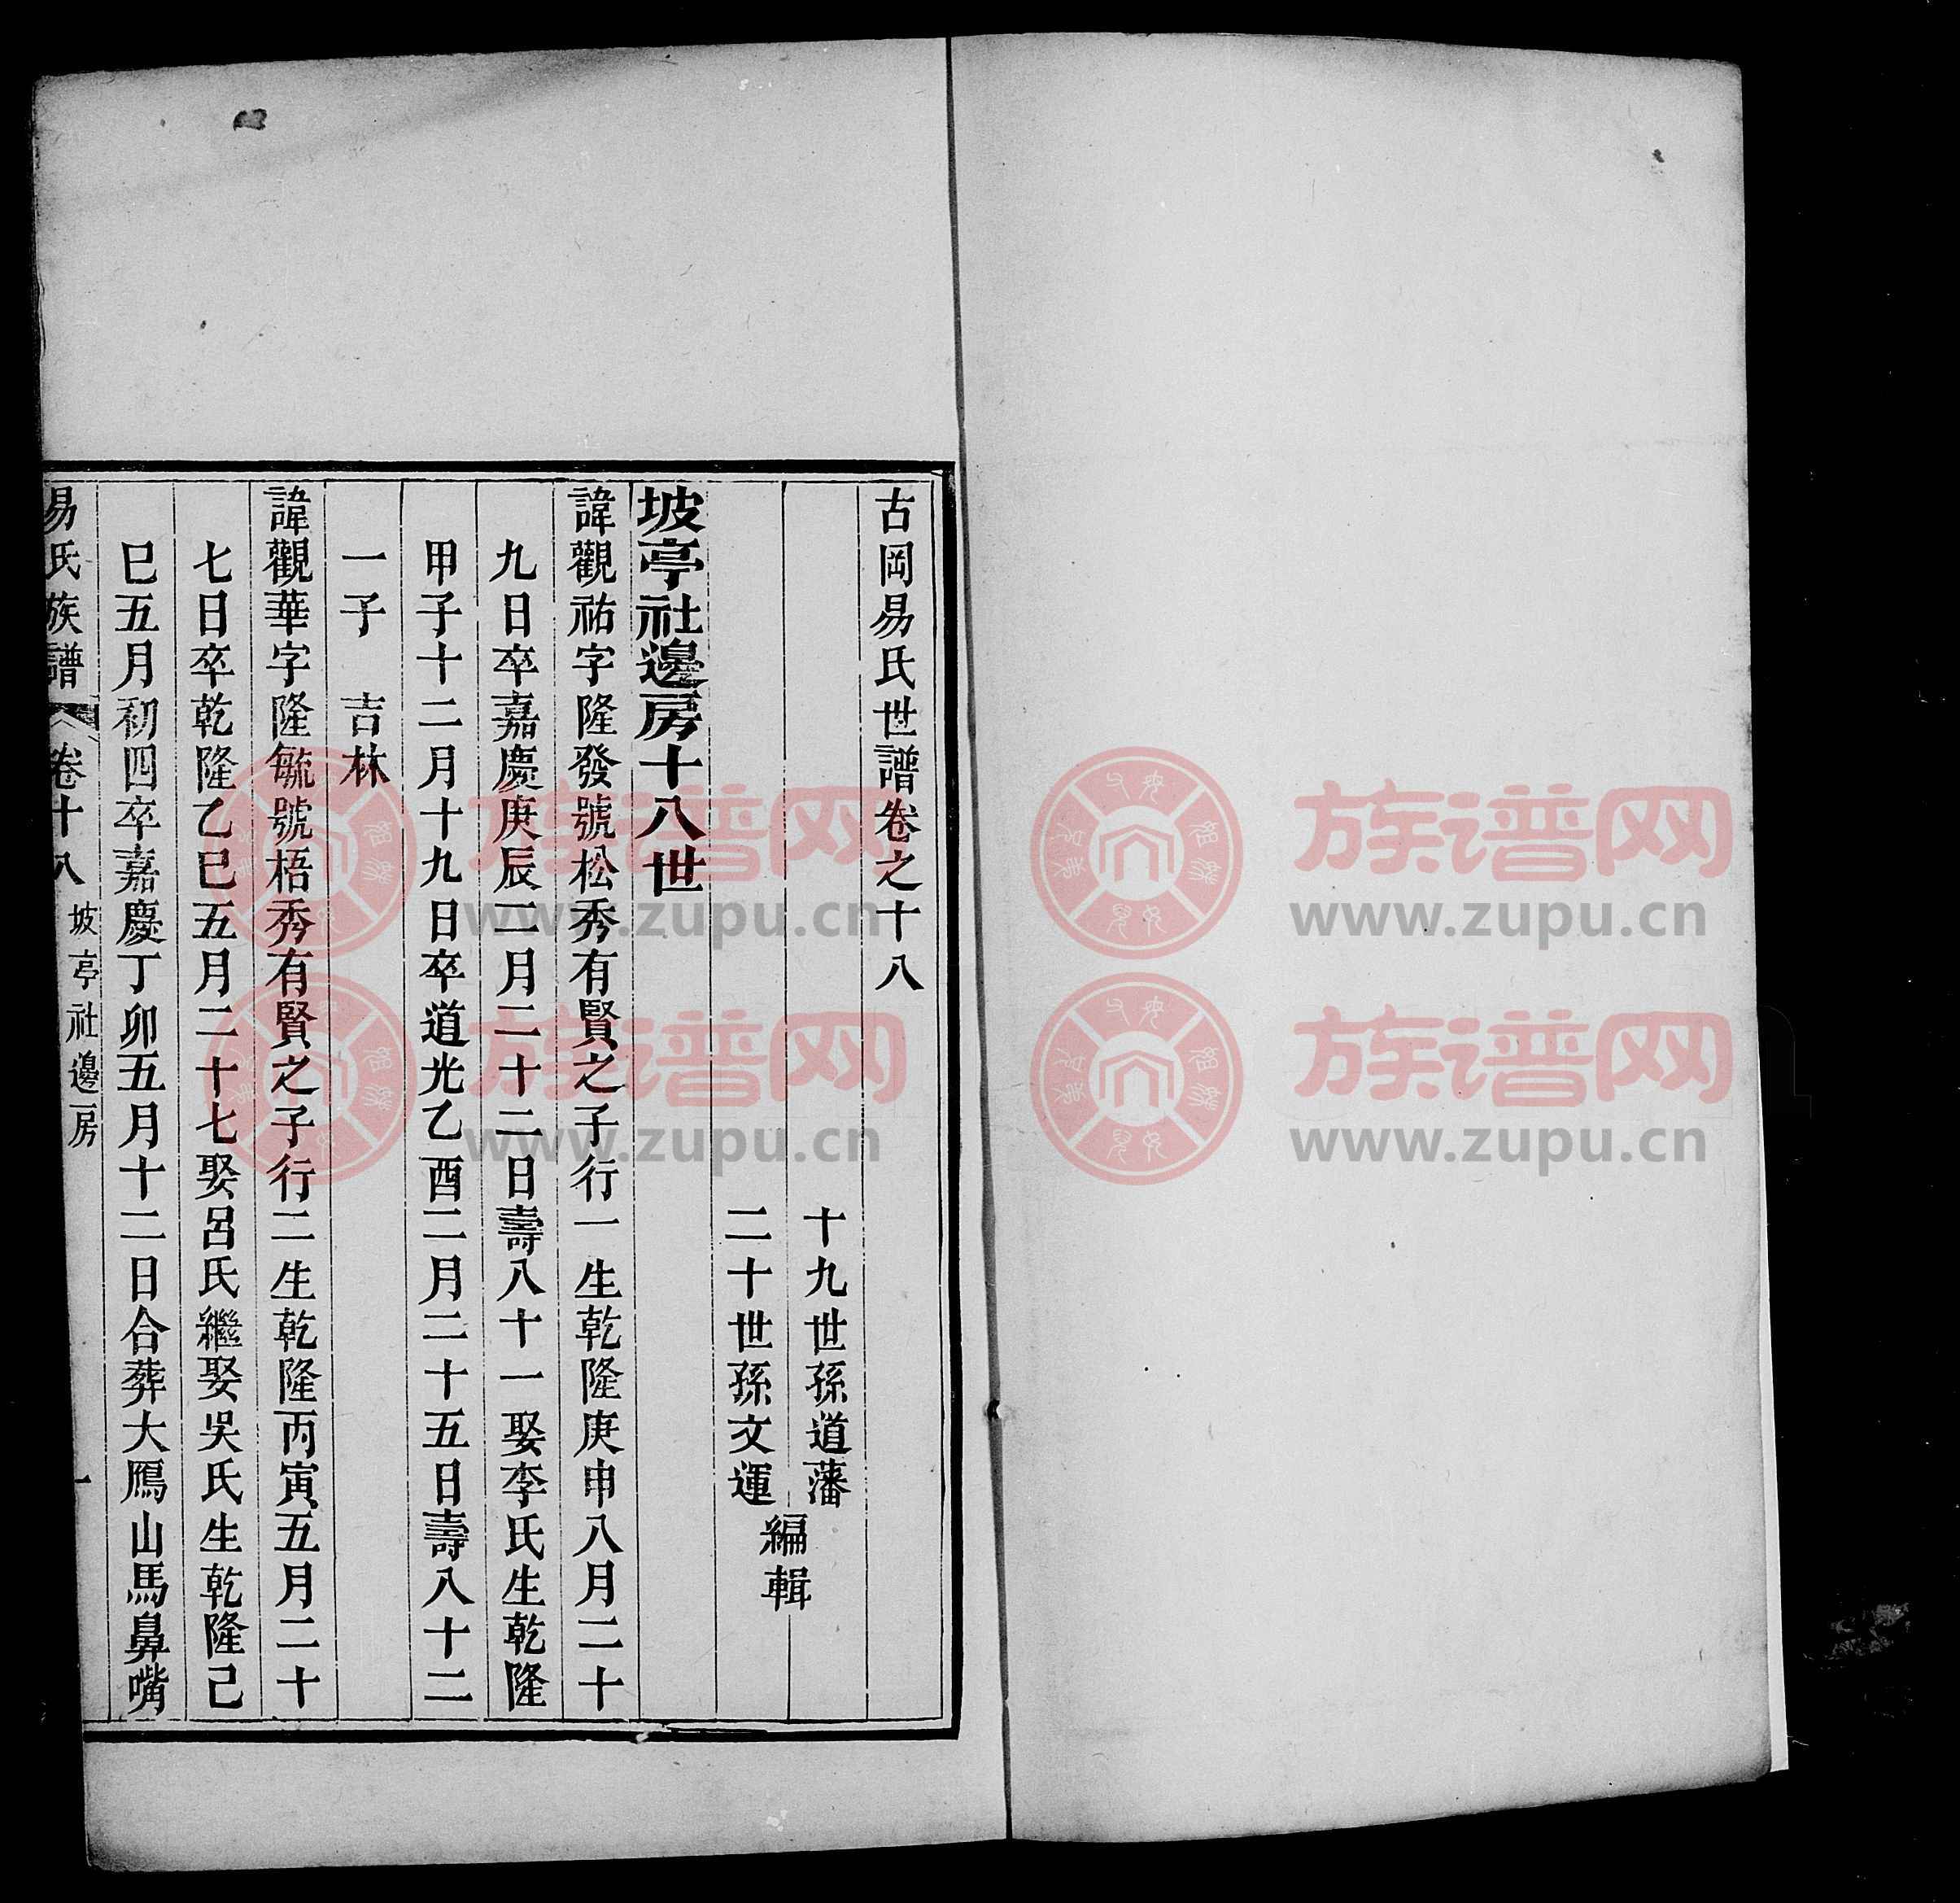 古岡易氏世譜卷之十八
十九世孫道藩
二十世孫文運
編輯
坡亭社邊房十八世
諱觀祐字隆發號松秀有賢之子行一生乾隆庚申八月二十
九日卒嘉慶庚辰二月二十二日壽八十一娶李氏生乾隆
甲子十二月十九日卒道光乙酉二月二十五日壽八十二
一子　吉林
諱觀華字隆毓號梧秀有賢之子行二生乾隆丙寅五月二十
七日卒乾隆乙巳五月二十七娶呂氏繼娶吳氏生乾隆己
巳五月初四卒嘉慶丁卯五月十二日合葬大鴈山馬鼻嘴
易氏族譜　卷十八　坡亭社邊房　一
族谱网
www.zupu.cn
族谱网
www.zupu.cn
族谱网
www.zupu.cn
族谱网
www.zupu.cn